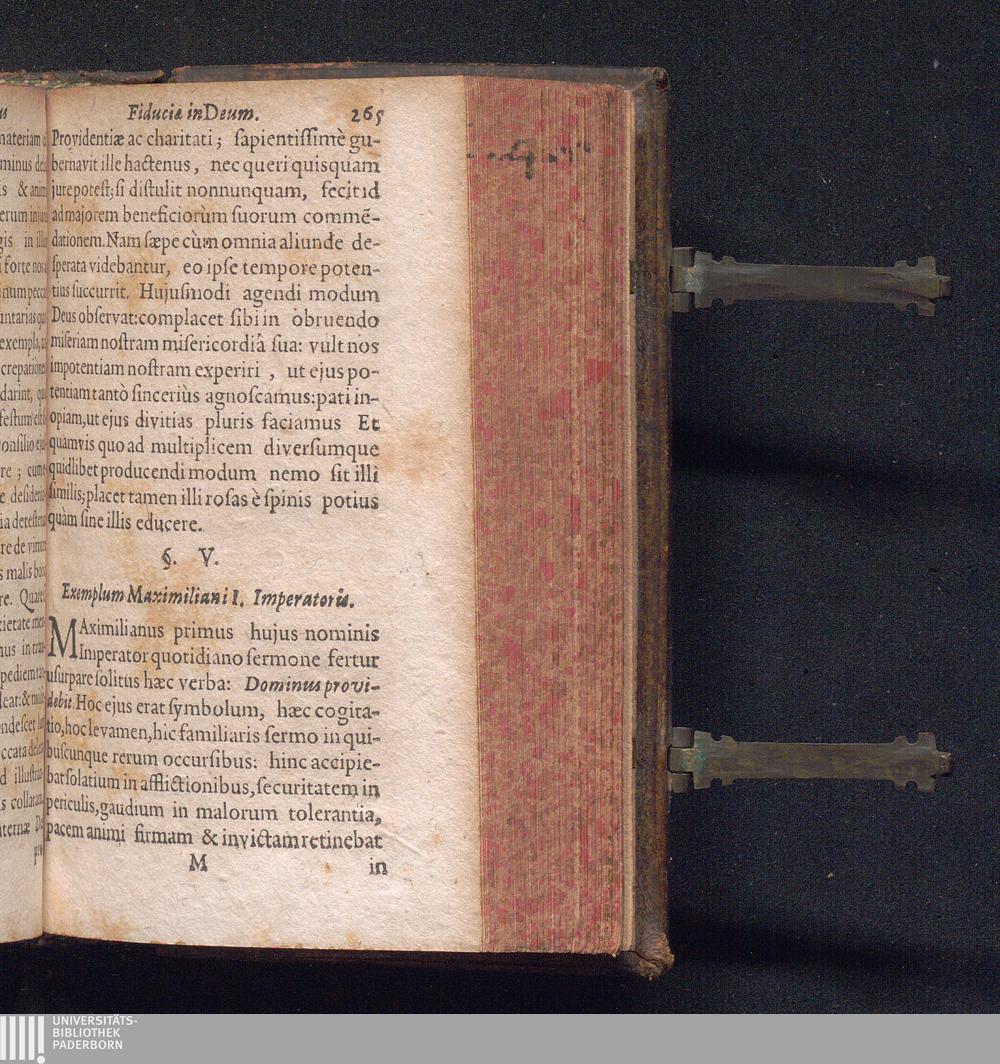 Fiduciæ in Deum. 265
Providentiæ ac charitati; ſapientiſſimè gu-
bernavit ille hactenus, nec queri quisquam
jure poteſt; ſi diſtulit nonnunquam, fecit id
ad majorem beneficiorùm ſuorum commē-
dationem. Nam ſæpe cùm omnia aliunde de-
ſperata videbantur, eo ipſe tempore poten-
tius ſuccurrit. Hujuſmodi agendi modum
Deus obſervat: complacet ſibi in òbruendo
miſeriam noſtram miſericordiâ ſua: vult nos
impotentiam noſtram experiri, ut ejus po-
tentiam tantò ſinceriùs agnoſcamus: pati in-
opiam, ut ejus divitias pluris faciamus Et
quamvis quo ad multiplicem diverſumque
quidlibet producendi modum nemo ſit illi
ſimilis; placet tamen illi roſas è ſpinis potius
quàm ſine illis educere.
§. V.
Exemplum Maximiliani I. Imperatoris.
MAximilianus primus hujus nominis
Imperator quotidiano ſermone fertur
uſurpare ſolitus hæc verba: Dominus provi-
debit Hoc ejus erat ſymbolum, hæc cogita-
tio, hoc levamen, hic familiaris ſermo in qui-
buſcunque rerum occurſibus: hinc accipie-
bat ſolatium in afflictionibus, ſecuritatem in
periculis, gaudium in malorum tolerantia,
pacem animi firmam & invictam retinebat
M in
UNIVERSITÄTS-
BIBLIOTHEK
PADERBORN